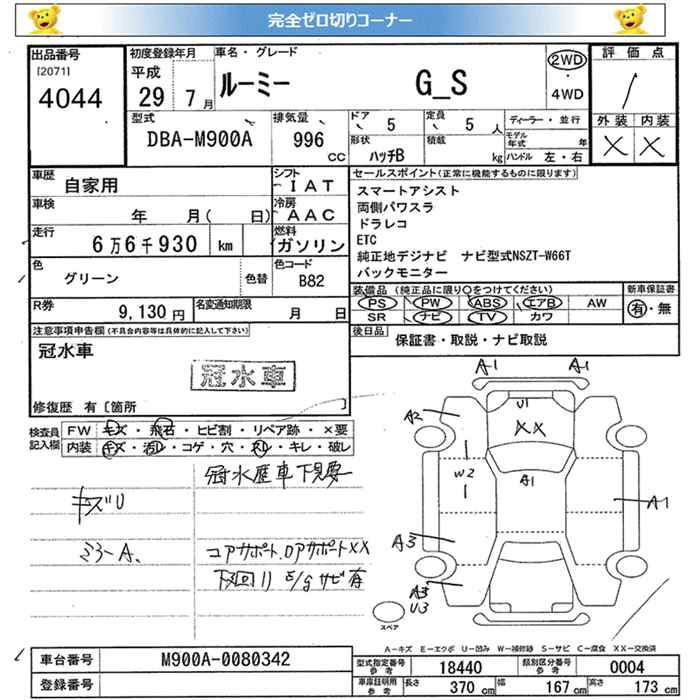 完全ゼロ切りコーナー
出品番号
[2071]
4044
初度登録年月
平成
29年 7月
車名・グレード
ルーミー G_S
2WD
・
4WD
評価点
/
外装 内装
× ×
型式
DBA-M900A
排気量
996
CC
ドア 5
定員 5 人
形状 ハッチB
積載 kg
ディーラー・並行
モデル年式 年
ハンドル 左・右
車歴 自家用
シフト IAT
車検 年 月( 日)
冷房 AAC
走行 6万6千930 km
燃料 ガソリン
色 グリーン 色替
色コード B82
R券 9,130円
名変通知期限 月 日
セールスポイント(正常に機能するものに限ります)
スマートアシスト
両側パワスラ
ドラレコ
ETC
純正地デジナビ ナビ型式NSZT-W66T
バックモニター
装備品 (純正品に限り○をつけてください)
新車保証書
PS PW ABS エアB AW
SR ナビ TV カワ
有・無
後日品 保証書・取説・ナビ取説
注意事項申告欄(不具合内容等は具体的に記入して下さい)
冠水車
冠水車
修復歴 有[箇所 ]
検査員記入欄
FW キズ・飛石・ヒビ割・リペア跡・×要
内装 キズ・汚レ・コゲ・穴・スレ・キレ・破レ
冠水歴車下見要
キズU
ミラーA.
コアサポート.ロアサポートXX
下回り E/gサビ有
A1 A1
A2
U1
XX
W2
A1
A1
A3
A3
U3
スペア
A−キズ E−エクボ U−凹み W−補修跡 S−サビ C−腐食 XX−交換済
車台番号 M900A-0080342
登録番号
型式指定番号 参考 18440
類別区分番号 参考 0004
車庫証明用 参考 長さ 370 cm 幅 167 cm 高さ 173 cm